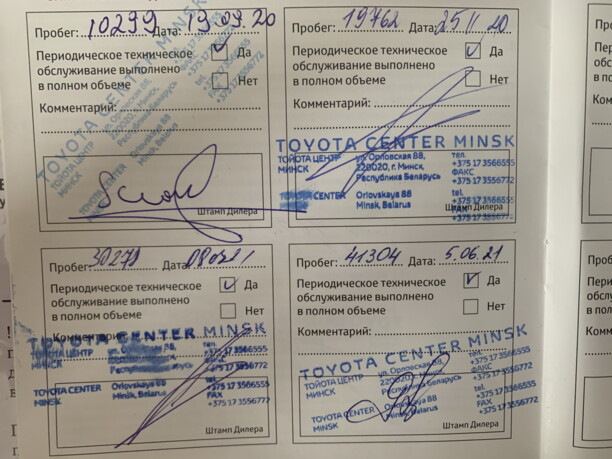 Пробег: 10299 Дата: 19.09.20
Периодическое техническое
обслуживание выполнено
в полном объеме
Да
Нет
Комментарий:
TOYOTA CENTER MINSK
ТОЙОТА ЦЕНТР
МИНСК
ул. Орловская 88,
220020, г. Минск,
Республика Беларусь
Orlovskaya 88
Minsk, Belarus
Штамп Дилера
Пробег: 19762 Дата: 25 11 20
Периодическое техническое
обслуживание выполнено
в полном объеме
Да
Нет
Комментарий:
TOYOTA CENTER MINSK
ТОЙОТА ЦЕНТР
МИНСК
ул. Орловская 88,
220020, г. Минск,
Республика Беларусь
тел.
+375 17 3566555
ФАКС
+375 17 3556772
TOYOTA CENTER
Orlovskaya 88
Minsk, Belarus
tel.
+375 17 3566555
FAX
+375 17 3556772
Штамп Дилера
Пробег: 30279 Дата:
Периодическое техническое
обслуживание выполнено
в полном объеме
Да
Нет
TOYOTA CENTER MINSK
ТОЙОТА ЦЕНТР
МИНСК
TOYOTA CENTER
MINSK
Orlovskaya 88
Minsk, Belarus
FAX
+375 17 3556772
Штамп Дилера
Пробег: 41304 Дата: 5.06.21
Периодическое техническое
обслуживание выполнено
в полном объеме
Да
Нет
Комментарий:
TOYOTA CENTER MINSK
ТОЙОТА ЦЕНТР
МИНСК
ул. Орловская 88,
220020, г. Минск,
Республика Беларусь
тел.
+375 17 3566555
ФАКС
+375 17 3556772
TOYOTA CENTER
MINSK
Minsk, Belarus
tel.
+375 17 3566555
FAX
+375 17 3556772
Штамп Дилера